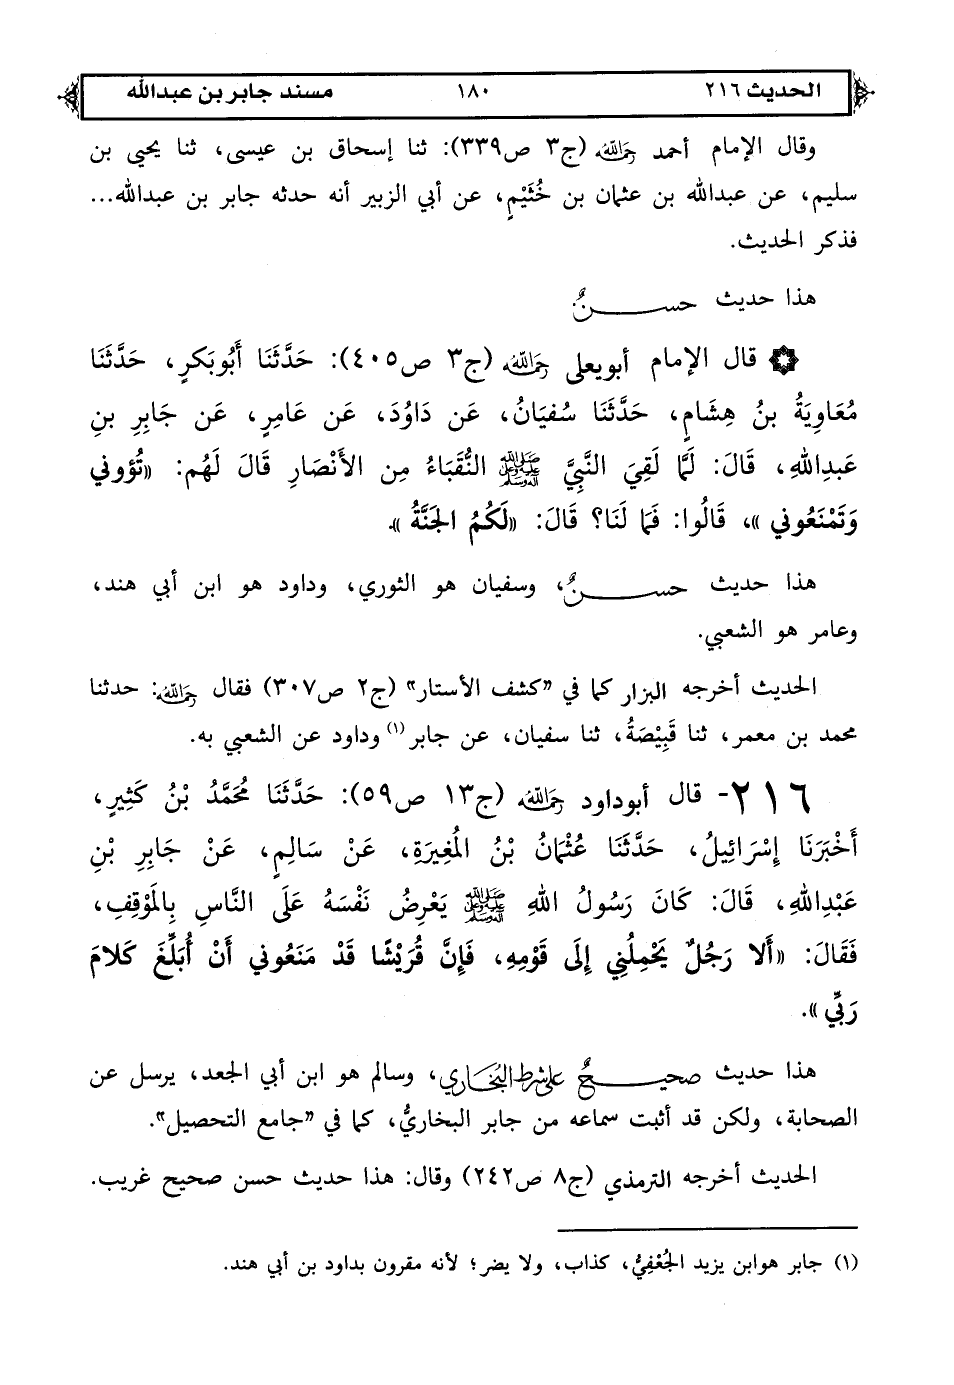 الحديث ٢١٦ ١٨٠ مسند جابر بن عبدالله
وقال الإمام أحمد رحمه الله (ج٣ ص٣٣٩): ثنا إسحاق بن عيسى، ثنا يحيى بن
سليم، عن عبدالله بن عثمان بن خُثَيْمٍ، عن أبي الزبير أنه حدثه جابر بن عبدالله...
فذكر الحديث.
هذا حديث حسنٌ
قال الإمام أبويعلى رحمه الله (ج٣ ص٤٠٥): حَدَّثَنَا أَبُوبَكرٍ، حَدَّثَنَا
مُعَاوِيَةُ بنُ هِشَامٍ، حَدَّثَنَا سُفيَانُ، عَن دَاوُدَ، عَن عَامِرٍ، عَن جَابِرِ بنِ
عَبدِاللهِ، قَالَ: لَمَّا لَقِيَ النَّبِيَّ ﷺ النُّقَبَاءُ مِن الأَنْصَارِ قَالَ لَهُم: «تُؤوني
وَتَمْنَعُوني»، قَالُوا: فَمَا لَنَا؟ قَالَ: «لَكُمُ الجَنَّةُ».
هذا حديث حسنٌ، وسفيان هو الثوري، وداود هو ابن أبي هند،
وعامر هو الشعبي.
الحديث أخرجه البزار كما في "كشف الأستار" (ج٢ ص٣٠٧) فقال رحمه الله: حدثنا
محمد بن معمر، ثنا قَبِيْصَةُ، ثنا سفيان، عن جابر(١) وداود عن الشعبي به.
٢١٦- قال أبوداود رحمه الله (ج١٣ ص٥٩): حَدَّثَنَا مُحَمَّدُ بْنُ كَثِيرٍ،
أَخْبَرَنَا إِسْرَائِيلُ، حَدَّثَنَا عُثْمَانُ بْنُ المُغِيرَةِ، عَنْ سَالِمٍ، عَنْ جَابِرِ بْنِ
عَبْدِاللهِ، قَالَ: كَانَ رَسُولُ اللهِ ﷺ يَعْرِضُ نَفْسَهُ عَلَى النَّاسِ بِالمَوْقِفِ،
فَقَالَ: «أَلا رَجُلٌ يَحْمِلُنِي إِلَى قَوْمِهِ، فَإِنَّ قُرَيْشًا قَدْ مَنَعُوني أَنْ أُبَلِّغَ كَلامَ
رَبِّي».
هذا حديث صحيحٌ على شرط البخاري، وسالم هو ابن أبي الجعد، يرسل عن
الصحابة، ولكن قد أثبت سماعه من جابر البخاريُّ، كما في "جامع التحصيل".
الحديث أخرجه الترمذي (ج٨ ص٢٤٢) وقال: هذا حديث حسن صحيح غريب.
(١) جابر هوابن يزيد الجُعْفِيُّ، كذاب، ولا يضر؛ لأنه مقرون بداود بن أبي هند.